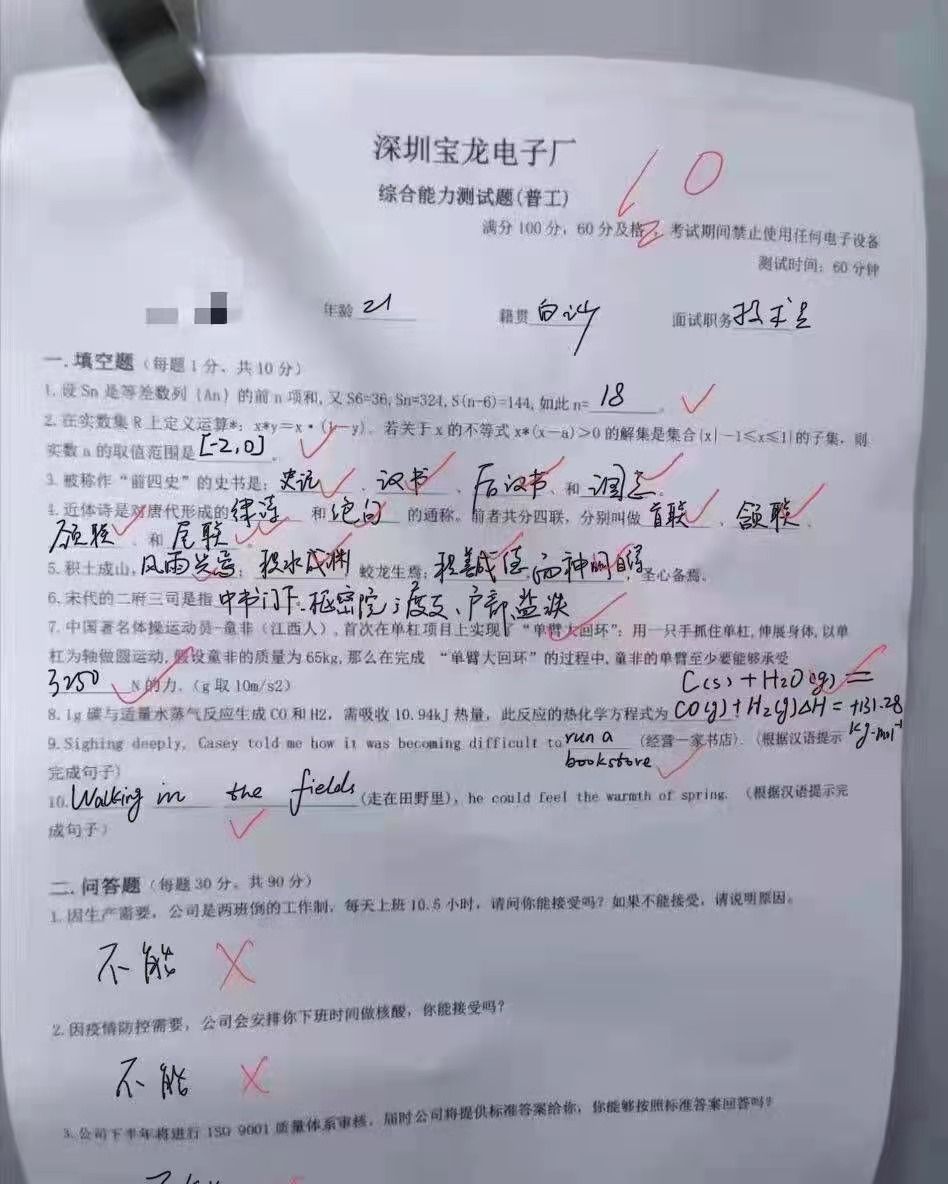 深圳宝龙电子厂
综合能力测试题(普工)
10
满分100分，60分及格，考试期间禁止使用任何电子设备
测试时间：60分钟
年龄 21 籍贯 白沙 面试职务 技术员
一.填空题（每题1分、共10分）
1.设Sn是等差数列{An}的前n项和,又S6=36,Sn=324,S(n-6)=144,如此n= 18 。
2.在实数集R上定义运算*：x*y=x·(1-y)．若关于x的不等式x*(x-a)>0的解集是集合{x|-1≤x≤1}的子集，则
实数a的取值范围是 [-2,0] 。
3.被称作“前四史”的史书是：史记、汉书、后汉书、和 国志。
4.近体诗是对唐代形成的 律诗 和 绝句 的通称。前者共分四联，分别叫做 首联、颔联、
颈联、和 尾联。
5.积土成山,风雨兴焉；积水成渊 蛟龙生焉；积善成德,而神明自得,圣心备焉。
6.宋代的二府三司是指 中书门下、枢密院；度支、户部、盐铁
7.中国著名体操运动员-童非（江西人）,首次在单杠项目上实现了“单臂大回环”：用一只手抓住单杠,伸展身体,以单
杠为轴做圆运动,假设童非的质量为65kg,那么在完成 “单臂大回环”的过程中,童非的单臂至少要能够承受
3250 N的力.（g取10m/s2）
8.1g碳与适量水蒸气反应生成CO和H2，需吸收10.94kJ热量，此反应的热化学方程式为 C(s)+H2O(g)=
CO(g)+H2(g)ΔH=+131.28
kJ·mol-1
9.Sighing deeply, Casey told me how it was becoming difficult to run a (经营一家书店)．（根据汉语提示
bookstore
完成句子）
10.Walking in the fields (走在田野里), he could feel the warmth of spring. （根据汉语提示完
成句子）
二.问答题（每题30分、共90分）
1.因生产需要，公司是两班倒的工作制，每天上班10.5小时，请问你能接受吗？如果不能接受，请说明原因。
不能
2.因疫情防控需要，公司会安排你下班时间做核酸，你能接受吗？
不能
3.公司下半年将进行ISO 9001质量体系审核，届时公司将提供标准答案给你，你能够按照标准答案回答吗？